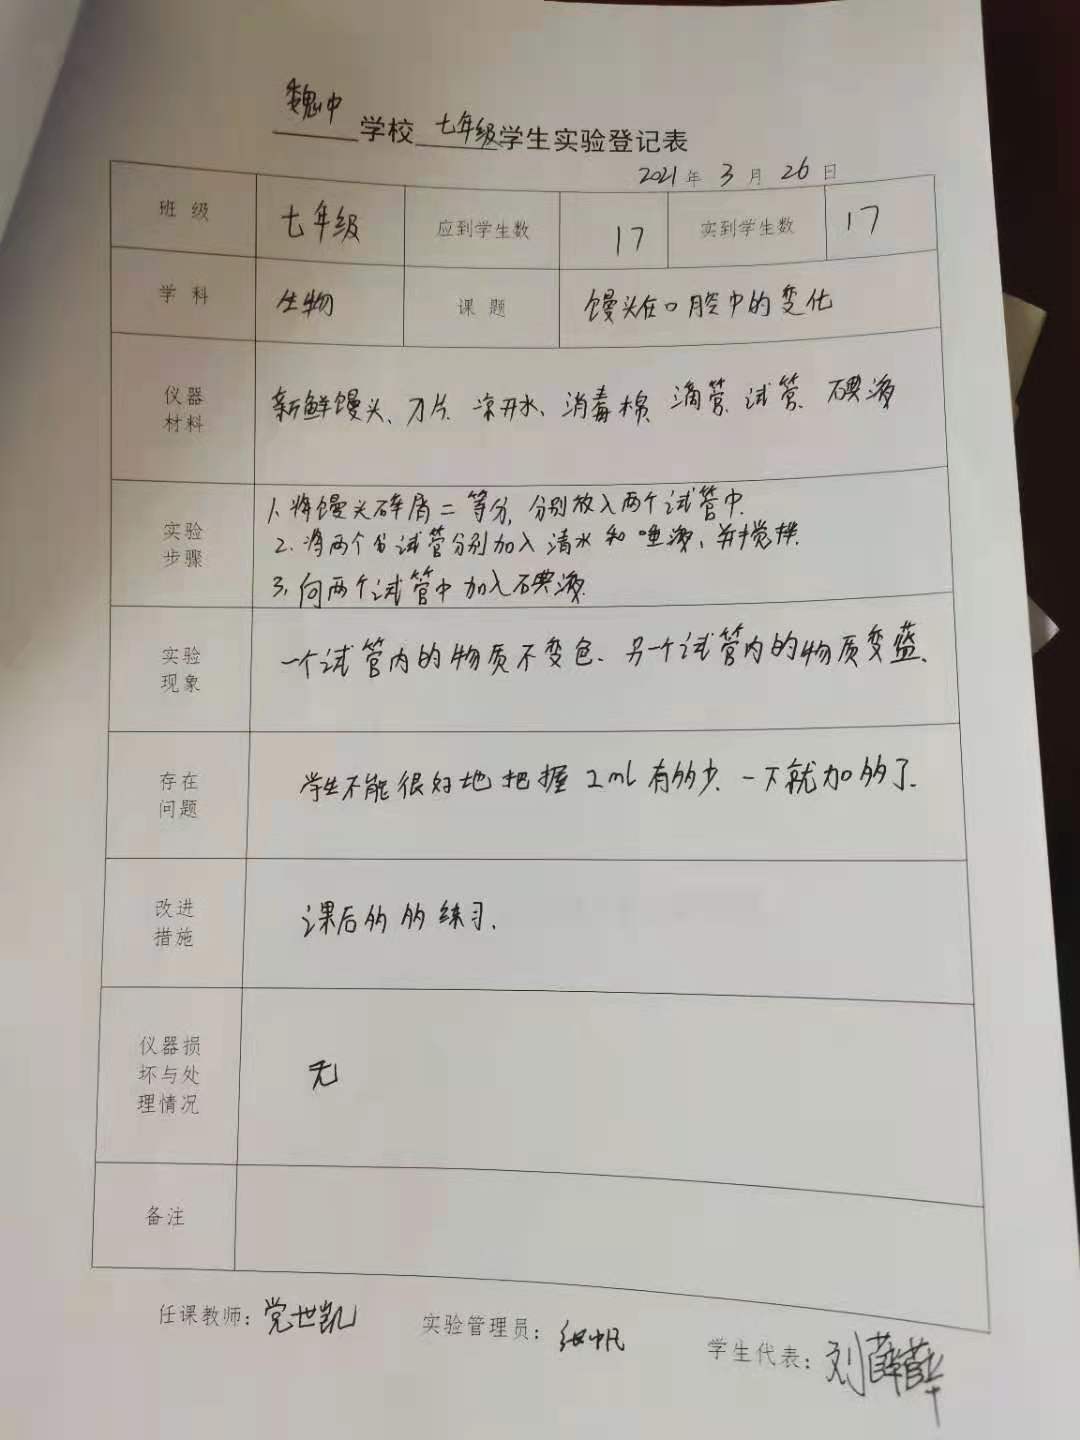 魏中学校七年级学生实验登记表
2021年3月26日
班级 七年级 应到学生数 17 实到学生数 17
学科 生物 课题 馒头在口腔中的变化
仪器材料 新鲜馒头、刀片、凉开水、消毒棉、滴管、试管、碘液
实验步骤
1、将馒头碎屑二等分,分别放入两个试管中.
2、将两个试管分别加入清水和唾液,并搅拌.
3、向两个试管中加入碘液.
实验现象 一个试管内的物质不变色、另一个试管内的物质变蓝、
存在问题 学生不能很好地把握2ml有多少、一下就加多了.
改进措施 课后多多练习.
仪器损坏与处理情况 无
备注
任课教师:党世凯 实验管理员: 学生代表:刘薛